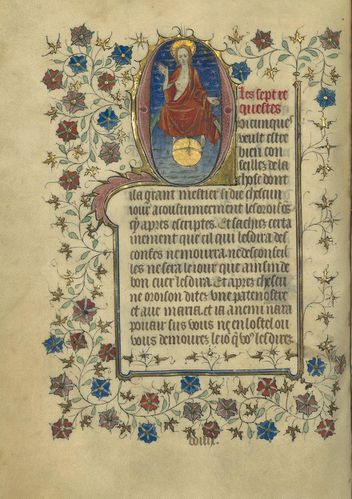 Les sept re
questes
uiconques
veult estre
bien con
seilles de la
chose dont
il a grant mestier si die chascun
iour acoustumeement les oroisos
cy apres escriptes. Et saches certai
nement que cil qui les dira des
contes ne mourra ne desconfeil
lies ne sera le iour que ainsi de
bon cuer les dira. Et apres chascu
ne oroison dites une patenostre
et aue maria. et ia anemi naura
pouair sus vous ne en lostel ou
vous demoures le io q vo les dires.